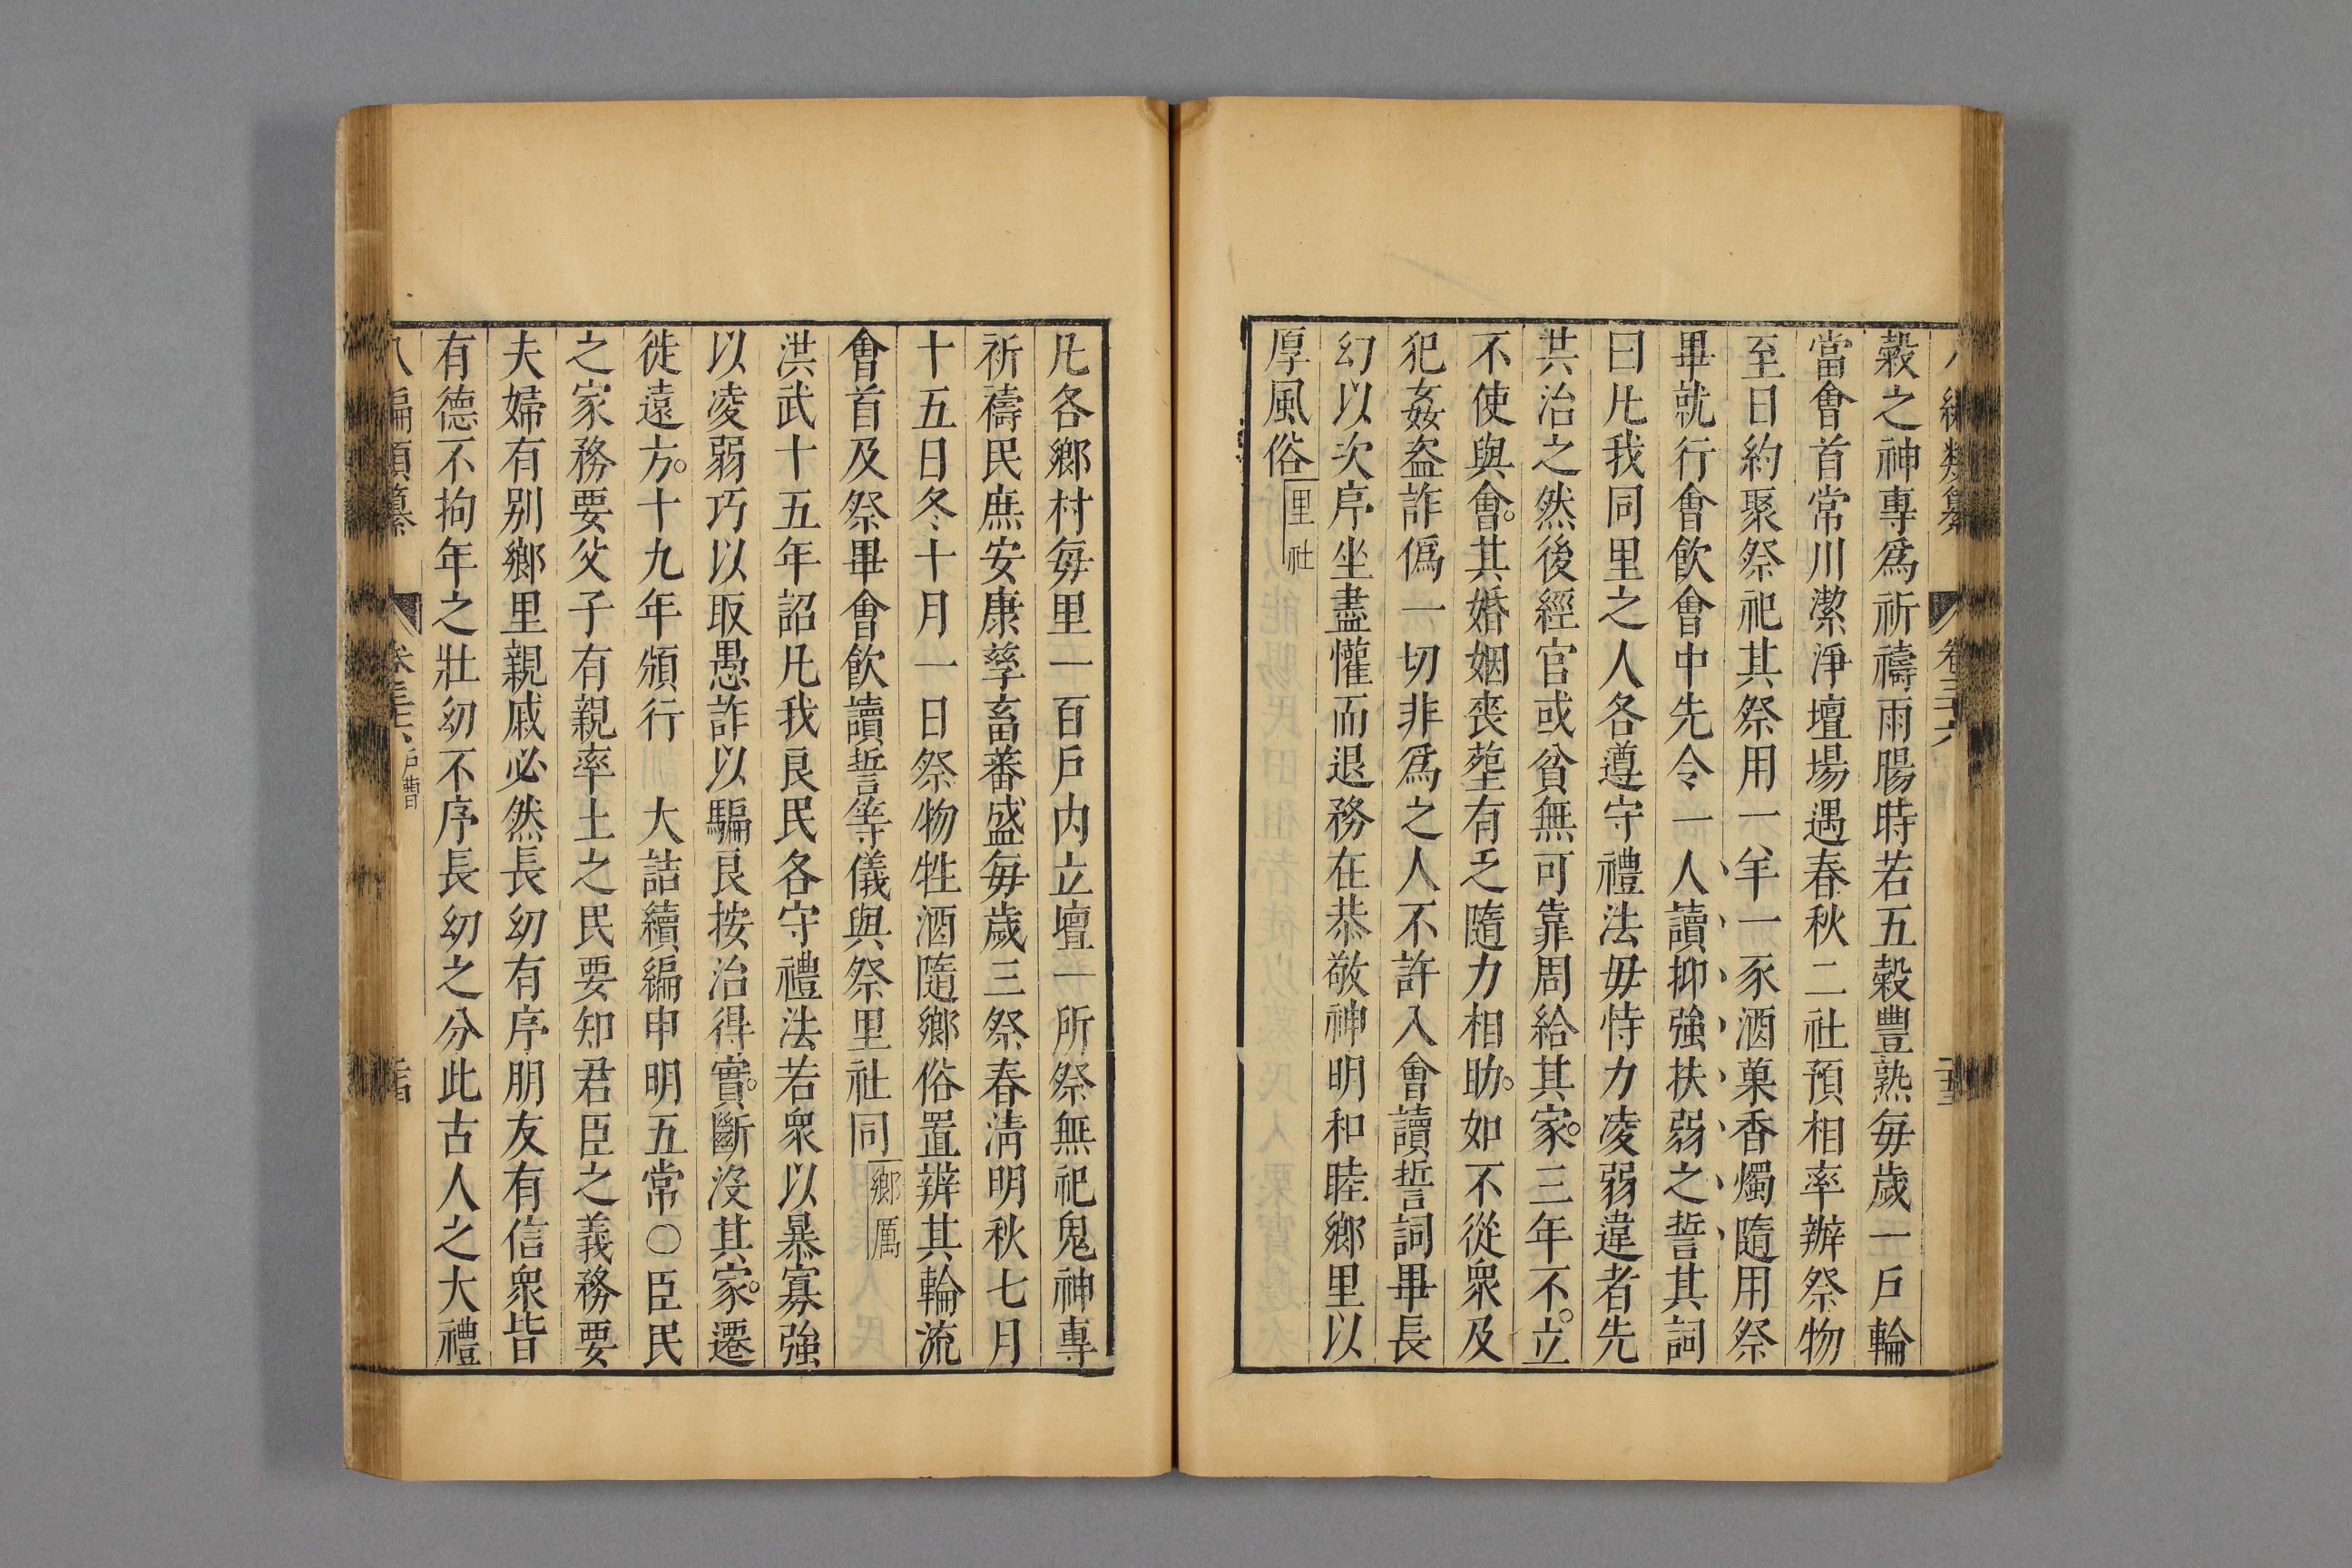 八編類纂 卷三十六
穀之神專爲祈禱雨暘時若五穀豐熟每歲一戶輪
當會首常川潔淨壇場遇春秋二社預相率辦祭物
至日約聚祭祀其祭用一羊一豕酒菓香燭隨用祭
畢就行會飲會中先令一人讀抑強扶弱之誓其詞
曰凡我同里之人各遵守禮法毋恃力凌弱違者先
共治之然後經官或貧無可靠周給其家三年不立
不使與會其婚姻喪塟有乏隨力相助如不從衆及
犯姦盗詐僞一切非爲之人不許入會讀誓詞畢長
幼以次序坐盡懽而退務在恭敬神明和睦鄉里以
厚風俗 里社
凡各鄉村每里一百戶内立壇一所祭無祀鬼神專
祈禱民庶安康孳畜蕃盛每歲三祭春淸明秋七月
十五日冬十月一日祭物牲酒隨鄉俗置辦其輪流
會首及祭畢會飲讀誓等儀與祭里社同 鄉厲
洪武十五年詔凡我良民各守禮法若衆以暴寡強
以凌弱巧以取愚詐以騙良按治得實斷沒其家遷
徙遠方。十九年頒行 大誥續編申明五常〇臣民
之家務要父子有親率土之民要知君臣之義務要
夫婦有別鄉里親戚必然長幼有序朋友有信衆皆
有德不拘年之壯幼不序長幼之分此古人之大禮
八編類纂 卷三十六 戶曹